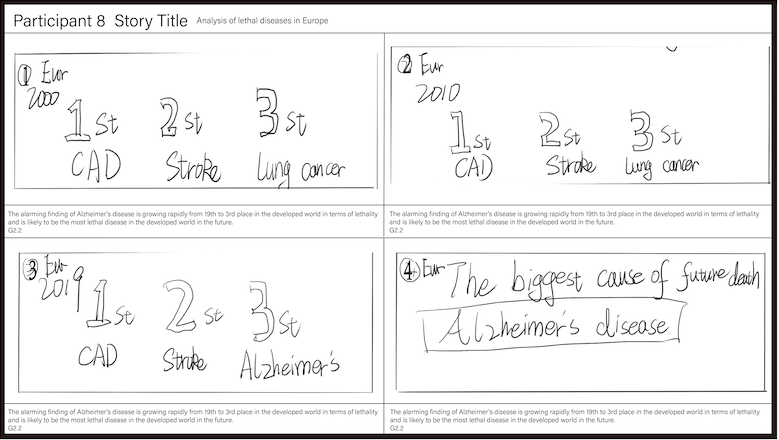 Participant 8 Story Title Analysis of lethal diseases in Europe
① Eur
2000
1st 2st 3st
CAD Stroke Lung cancer
The alarming finding of Alzheimer's disease is growing rapidly from 19th to 3rd place in the developed world in terms of lethality
and is likely to be the most lethal disease in the developed world in the future.
G2.2
② Eur
2010
1st 2st 3st
CAD Stroke Lung cancer
The alarming finding of Alzheimer's disease is growing rapidly from 19th to 3rd place in the developed world in terms of lethality
and is likely to be the most lethal disease in the developed world in the future.
G2.2
③ Eur
2019
1st 2st 3st
CAD Stroke Alzheimer's
The alarming finding of Alzheimer's disease is growing rapidly from 19th to 3rd place in the developed world in terms of lethality
and is likely to be the most lethal disease in the developed world in the future.
G2.2
④ Eur The biggest cause of future death
Alzheimer's disease
The alarming finding of Alzheimer's disease is growing rapidly from 19th to 3rd place in the developed world in terms of lethality
and is likely to be the most lethal disease in the developed world in the future.
G2.2